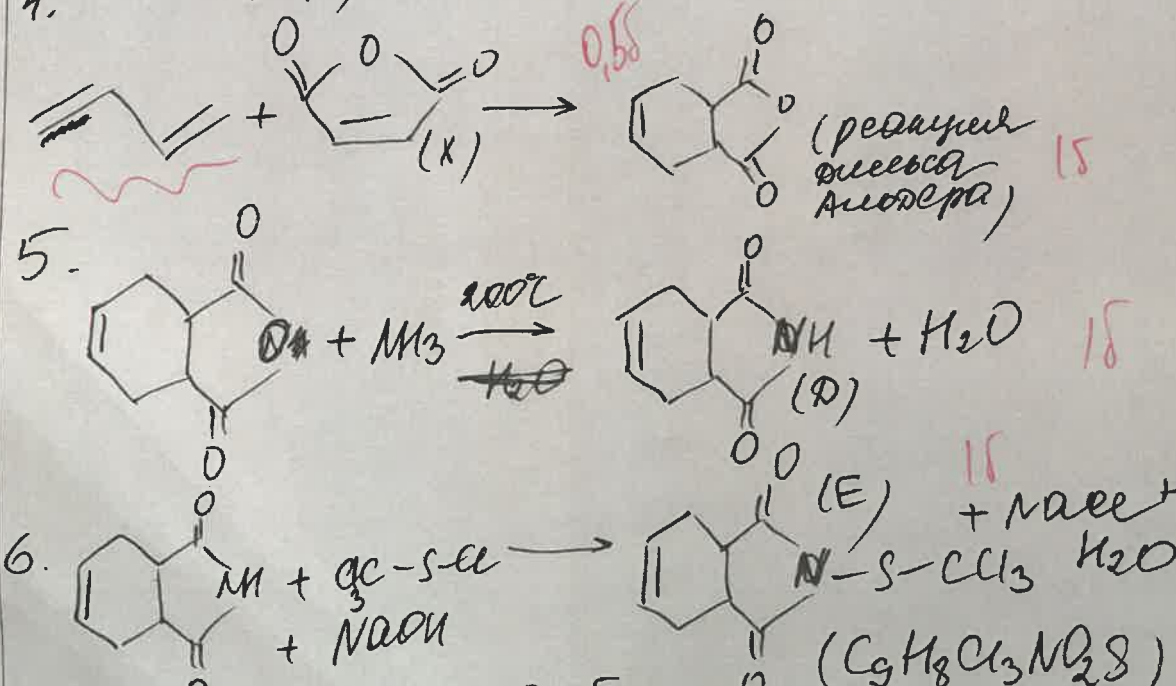 4.
+ (X) → 0,5б (реакция Дильса Альдера) 1б
5. + NH3 200°C → NH (D) + H2O 1б
6. NH + Cl3C-S-Cl + NaOH → N-S-CCl3 (E) + NaCl + H2O 1б
(C9H8Cl3NO2S)